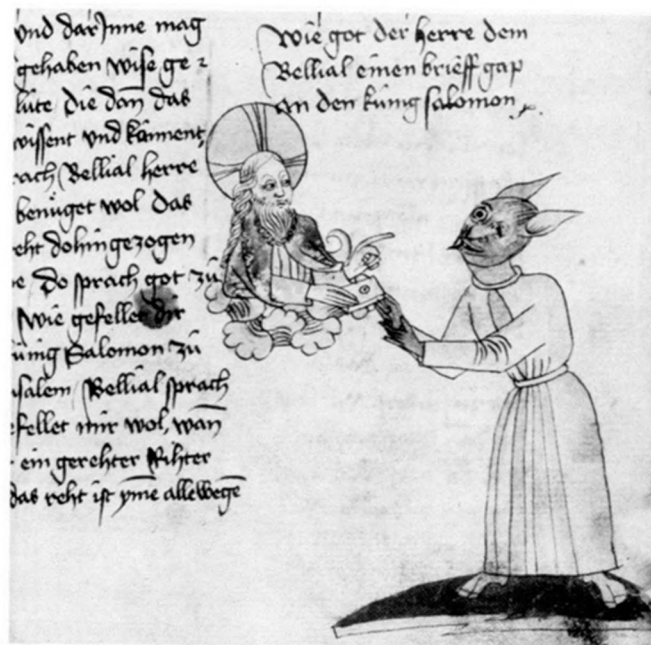 vnd dar Inne mag
gehaben wise ge⸗
lüte die dañ das
wissent vnd kannent,
rach Bellial herre
benüget wol das
eht dohin gezogen
e Do sprach got zü
Wie gefellet dir
ünig Salomon zü
usalem Bellial sprach
efellet mir wol, wañ
ein gerehter Rihter
das reht ist yme̅ allewege̅
Wie got der herre dem
Bellial einen brieff gap
an den künig salomon